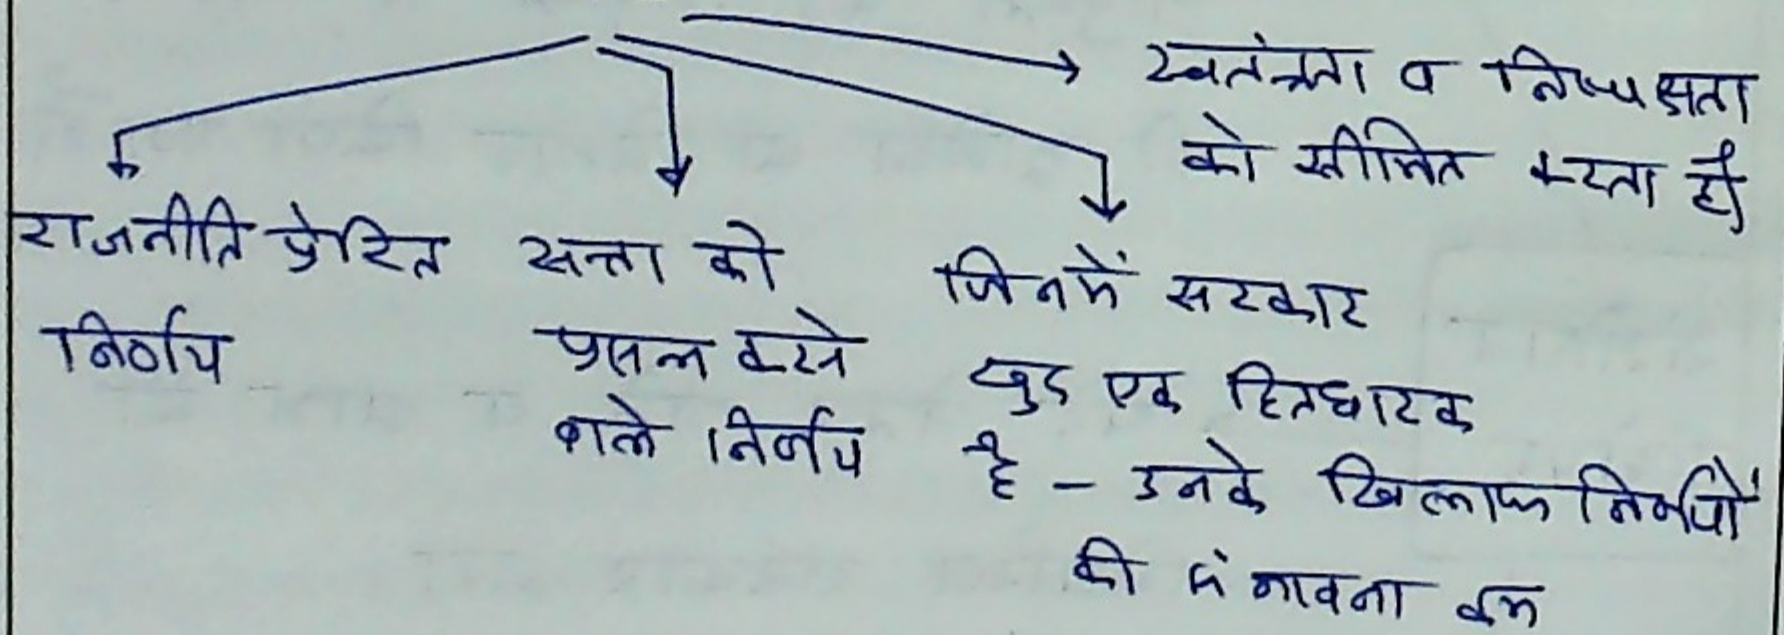 स्वतंत्रता व निष्पक्षता
को सीमित करता है
राजनीति प्रेरित
निर्णय
सत्ता को
प्रसन्न करने
वाले निर्णय
जिनमें सरकार
खुद एक हितधारक
है - उनके खिलाफ निर्णयों
की संभावना कम